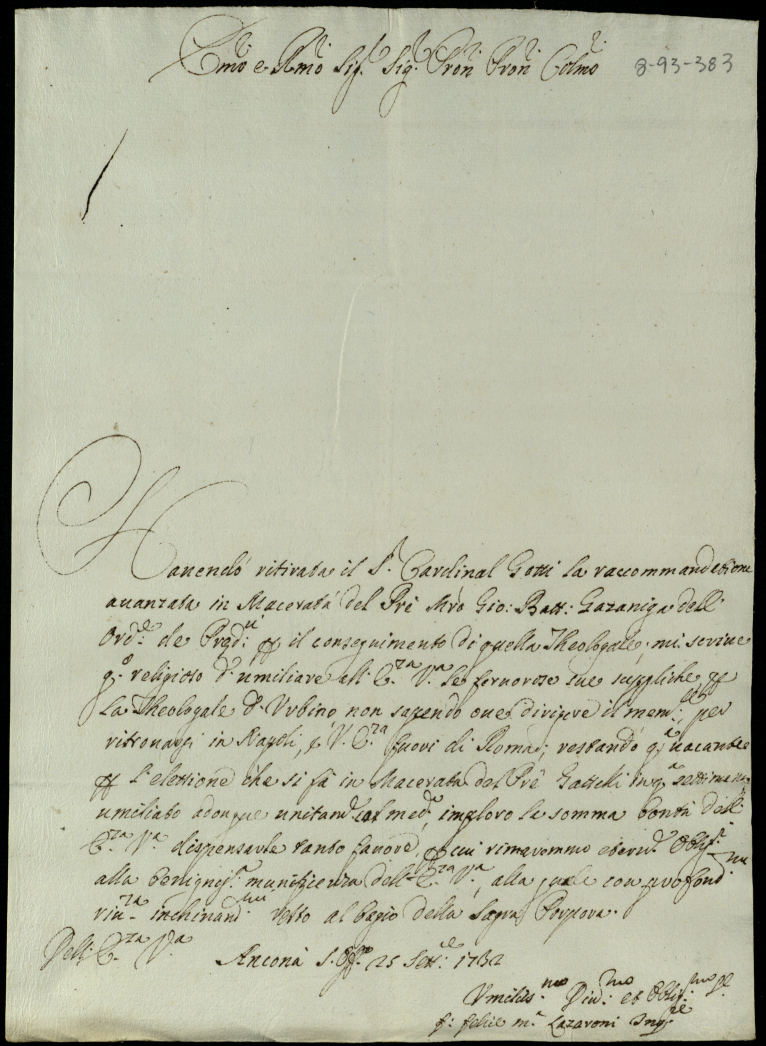 Em.o e R.mo Sig.r Sig.r Pron Pron Col.mo 8-93-383
Hauendo ritirata il S.r Cardinal Gotti la raccommandatione
auanzata in Macerata del Pre Mro Gio: Batt: Gazaniga dell
Ord.e de Pred.ri, p il conseguimento di quella Theologale, mi scriue
q.o religioso d'umiliare all' E.za V.a le feruorose sue suppliche p
la Theologale d'Vrbino, non sapendo oue dirigere il mem.le per
ritrouarsi in Napoli, e V. E.za fuori di Roma; restando q.a uacante
p l'elettione che si fà in Macerata del Pre Gattelli in q.a settimana
umiliato adonque unitam.e al med.o, imploro la somma bontà dell
E.za V.a dispensarle tanto fauore, p cui rimaremmo eterni Oblig.mi
alla benignis.a munificenza dell' E.za V.a, alla quale con profond.ma
riu.za inchinand.mi resto al bagio della Sagra Porpora.
Dell: E.za V.a Ancona S. Off.o 25 Sett.e 1732
Vmilis.mo Diu.mo et Oblig.mo Se
f: Felice M.a Lazaroni Inq.re